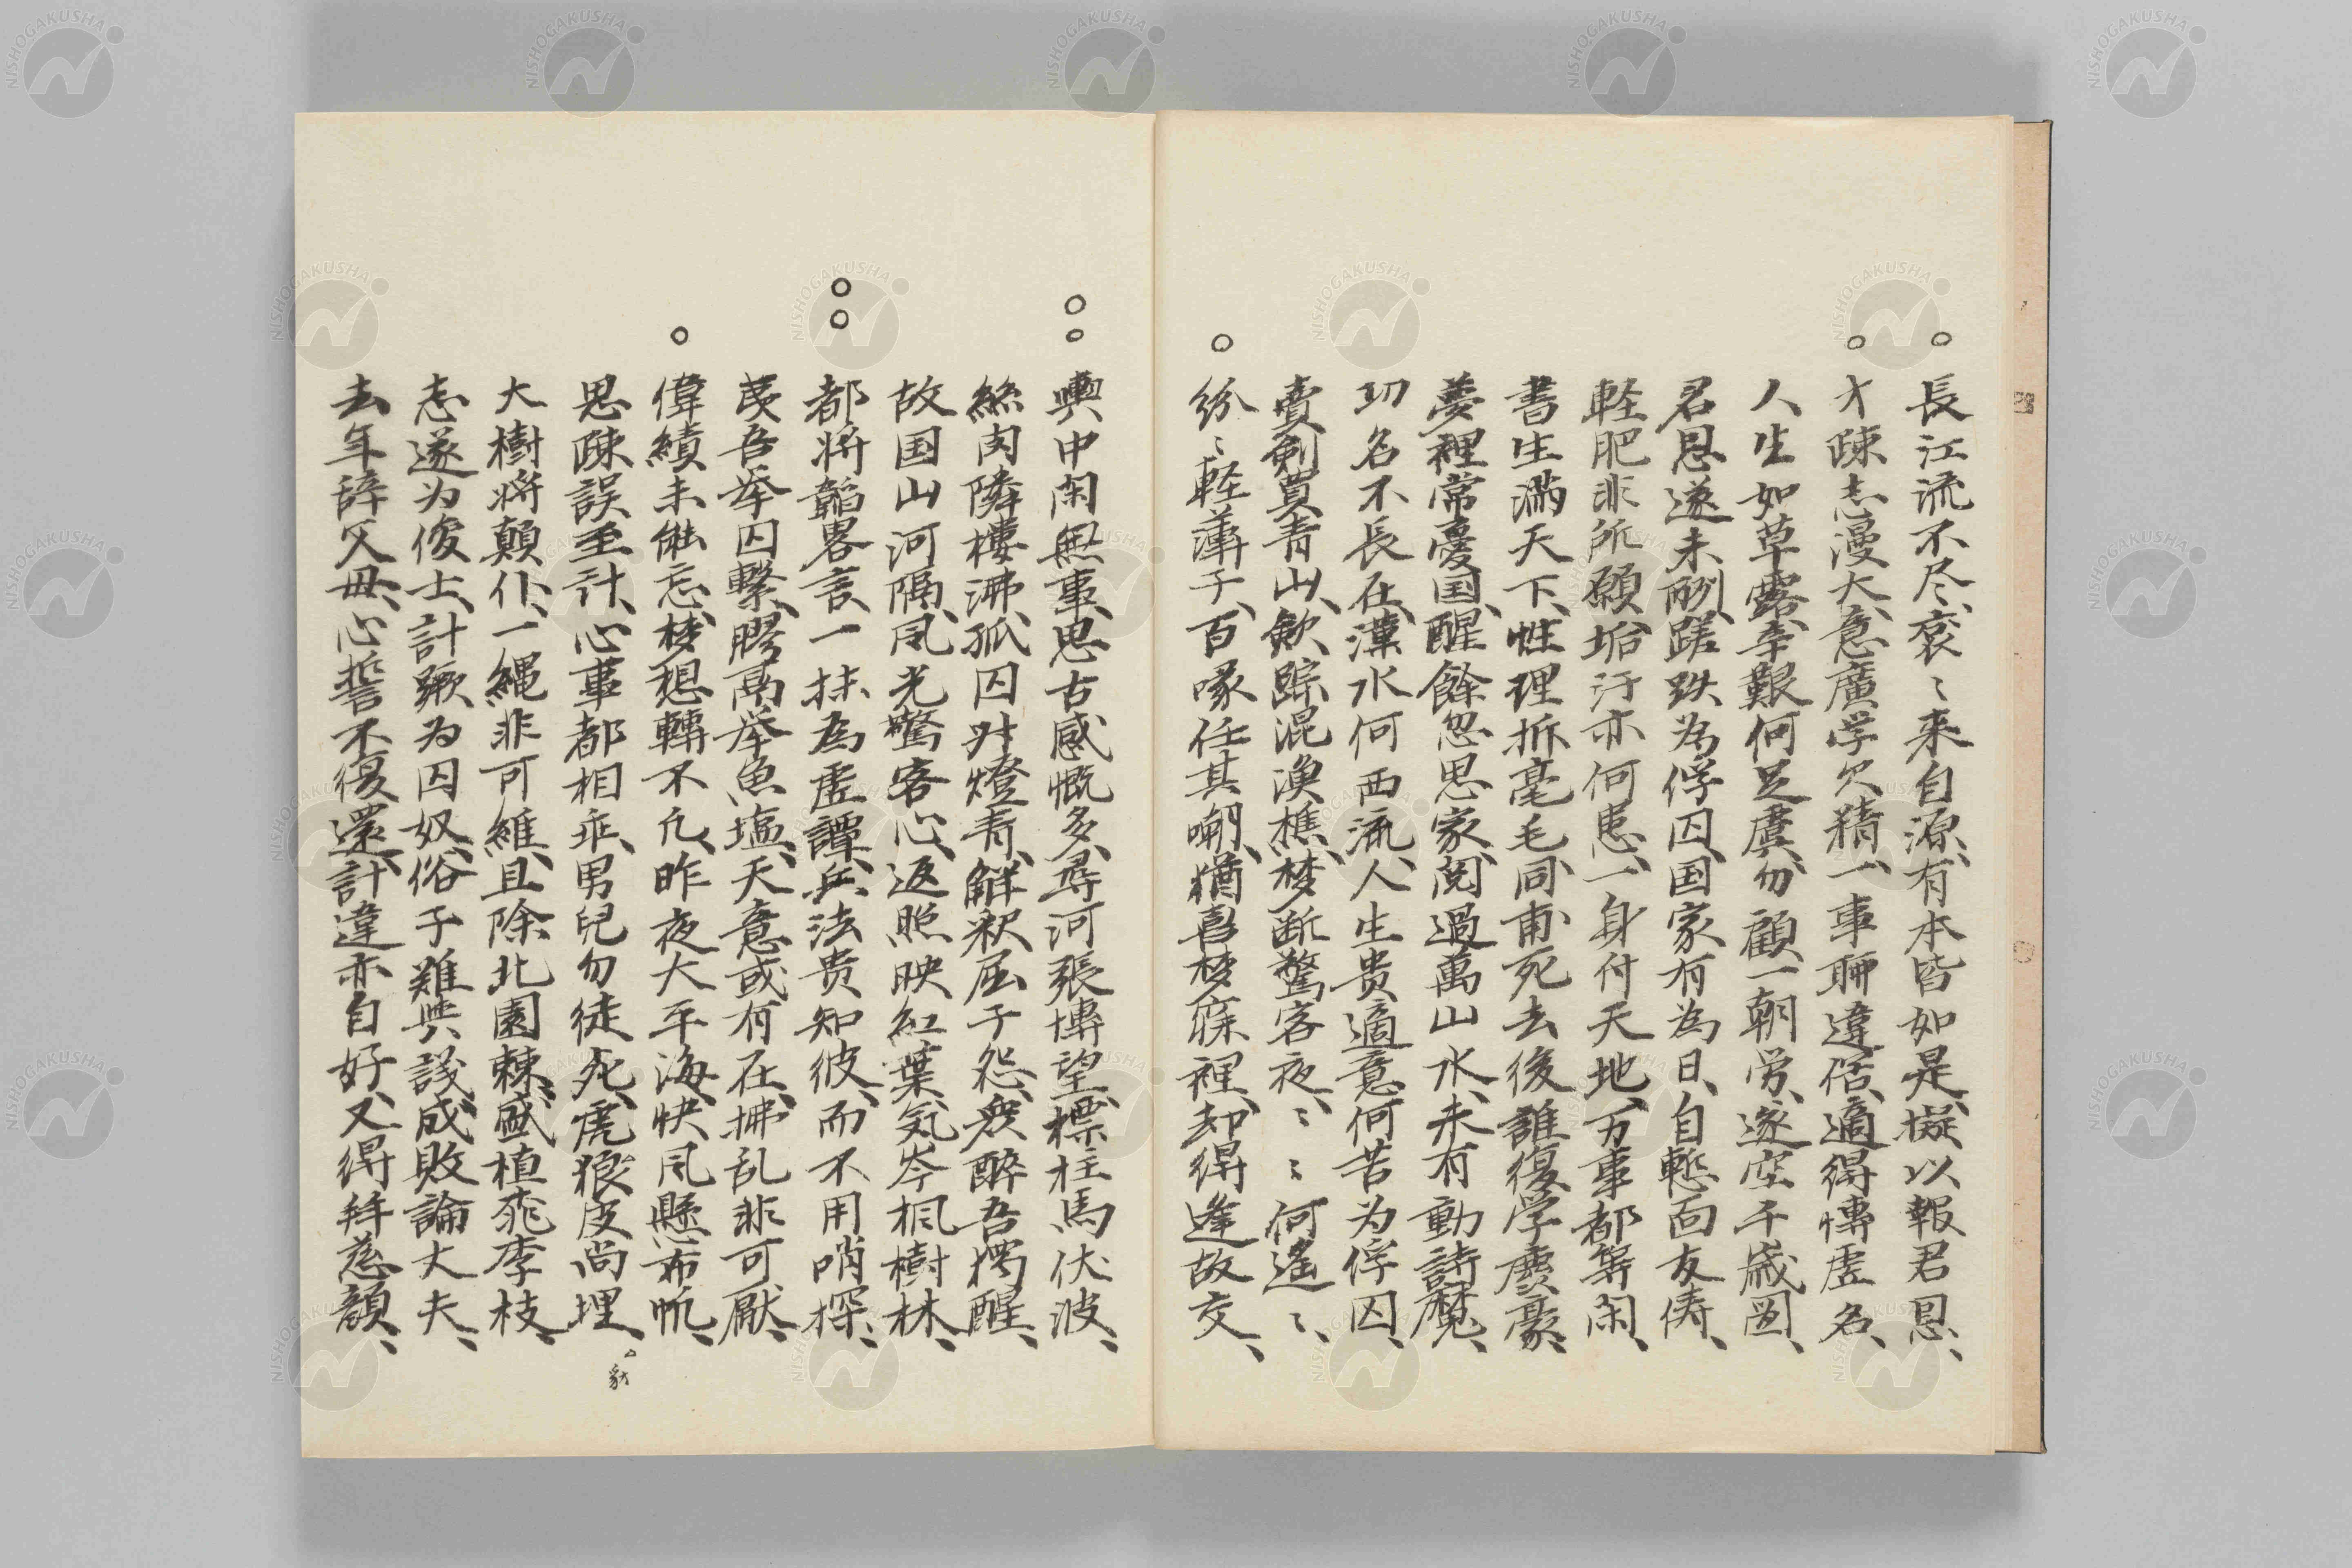 長江流不尽、袞〻来自源、有本皆如是、擬以報君恩、
才疎志漫大、意廣学欠精、一事聊違俗、適得博虚名、
人生如草露、辛艱何足虞、勿顧一朝労、遂空千歳圖、
君恩遂未酬、蹉跌為俘囚、国家有為日、自慙面友儔、
軽肥非所願、垢汙亦何患、一身付天地、万事都等閑、
書生満天下、性理拆毫毛、同甫死去後、誰復学麁豪、
夢裡常憂国、醒餘忽思家、閲過萬山水、未有動詩魔、
功名不長在、漢水何西流、人生貴適意、何苦为俘囚、
賣剣買青山、歛踪混漁樵、梦断驚客夜、〻〻何遙〻、
紛〻軽薄子、百喙任其嘲、猶喜梦寐裡、却得逢故交、
輿中閑無事、思古感慨多、尋河張博望、標柱馬伏波、
絲肉隣樓沸、孤囚対燈青、觧釈屈子怨、衆醉吾獨醒、
故国山河隔、風光驚客心、返照映紅葉、気岑楓樹林、
都将韜畧言、一抹為虚譚、兵法贵知彼、而不用哨探、
莫吾挙囚繋、膠鬲挙魚塩、天意或有在、拂乱非可厭、
偉績未能忘、梦想轉不凡、昨夜大平海、快風懸布帆、
思疎誤至計、心事都相乖、男兒勿徒死、虎狼皮尚埋、
豺
大樹将顛仆、一縄非可維、且除北園棘、盛植桃李枝、
志遂为俊士、計蹶为囚奴、俗子難與議、成敗論大夫、
去年辞父母、心誓不復還、計違亦自好、又得拜慈顔、
NISHOGAKUSHA